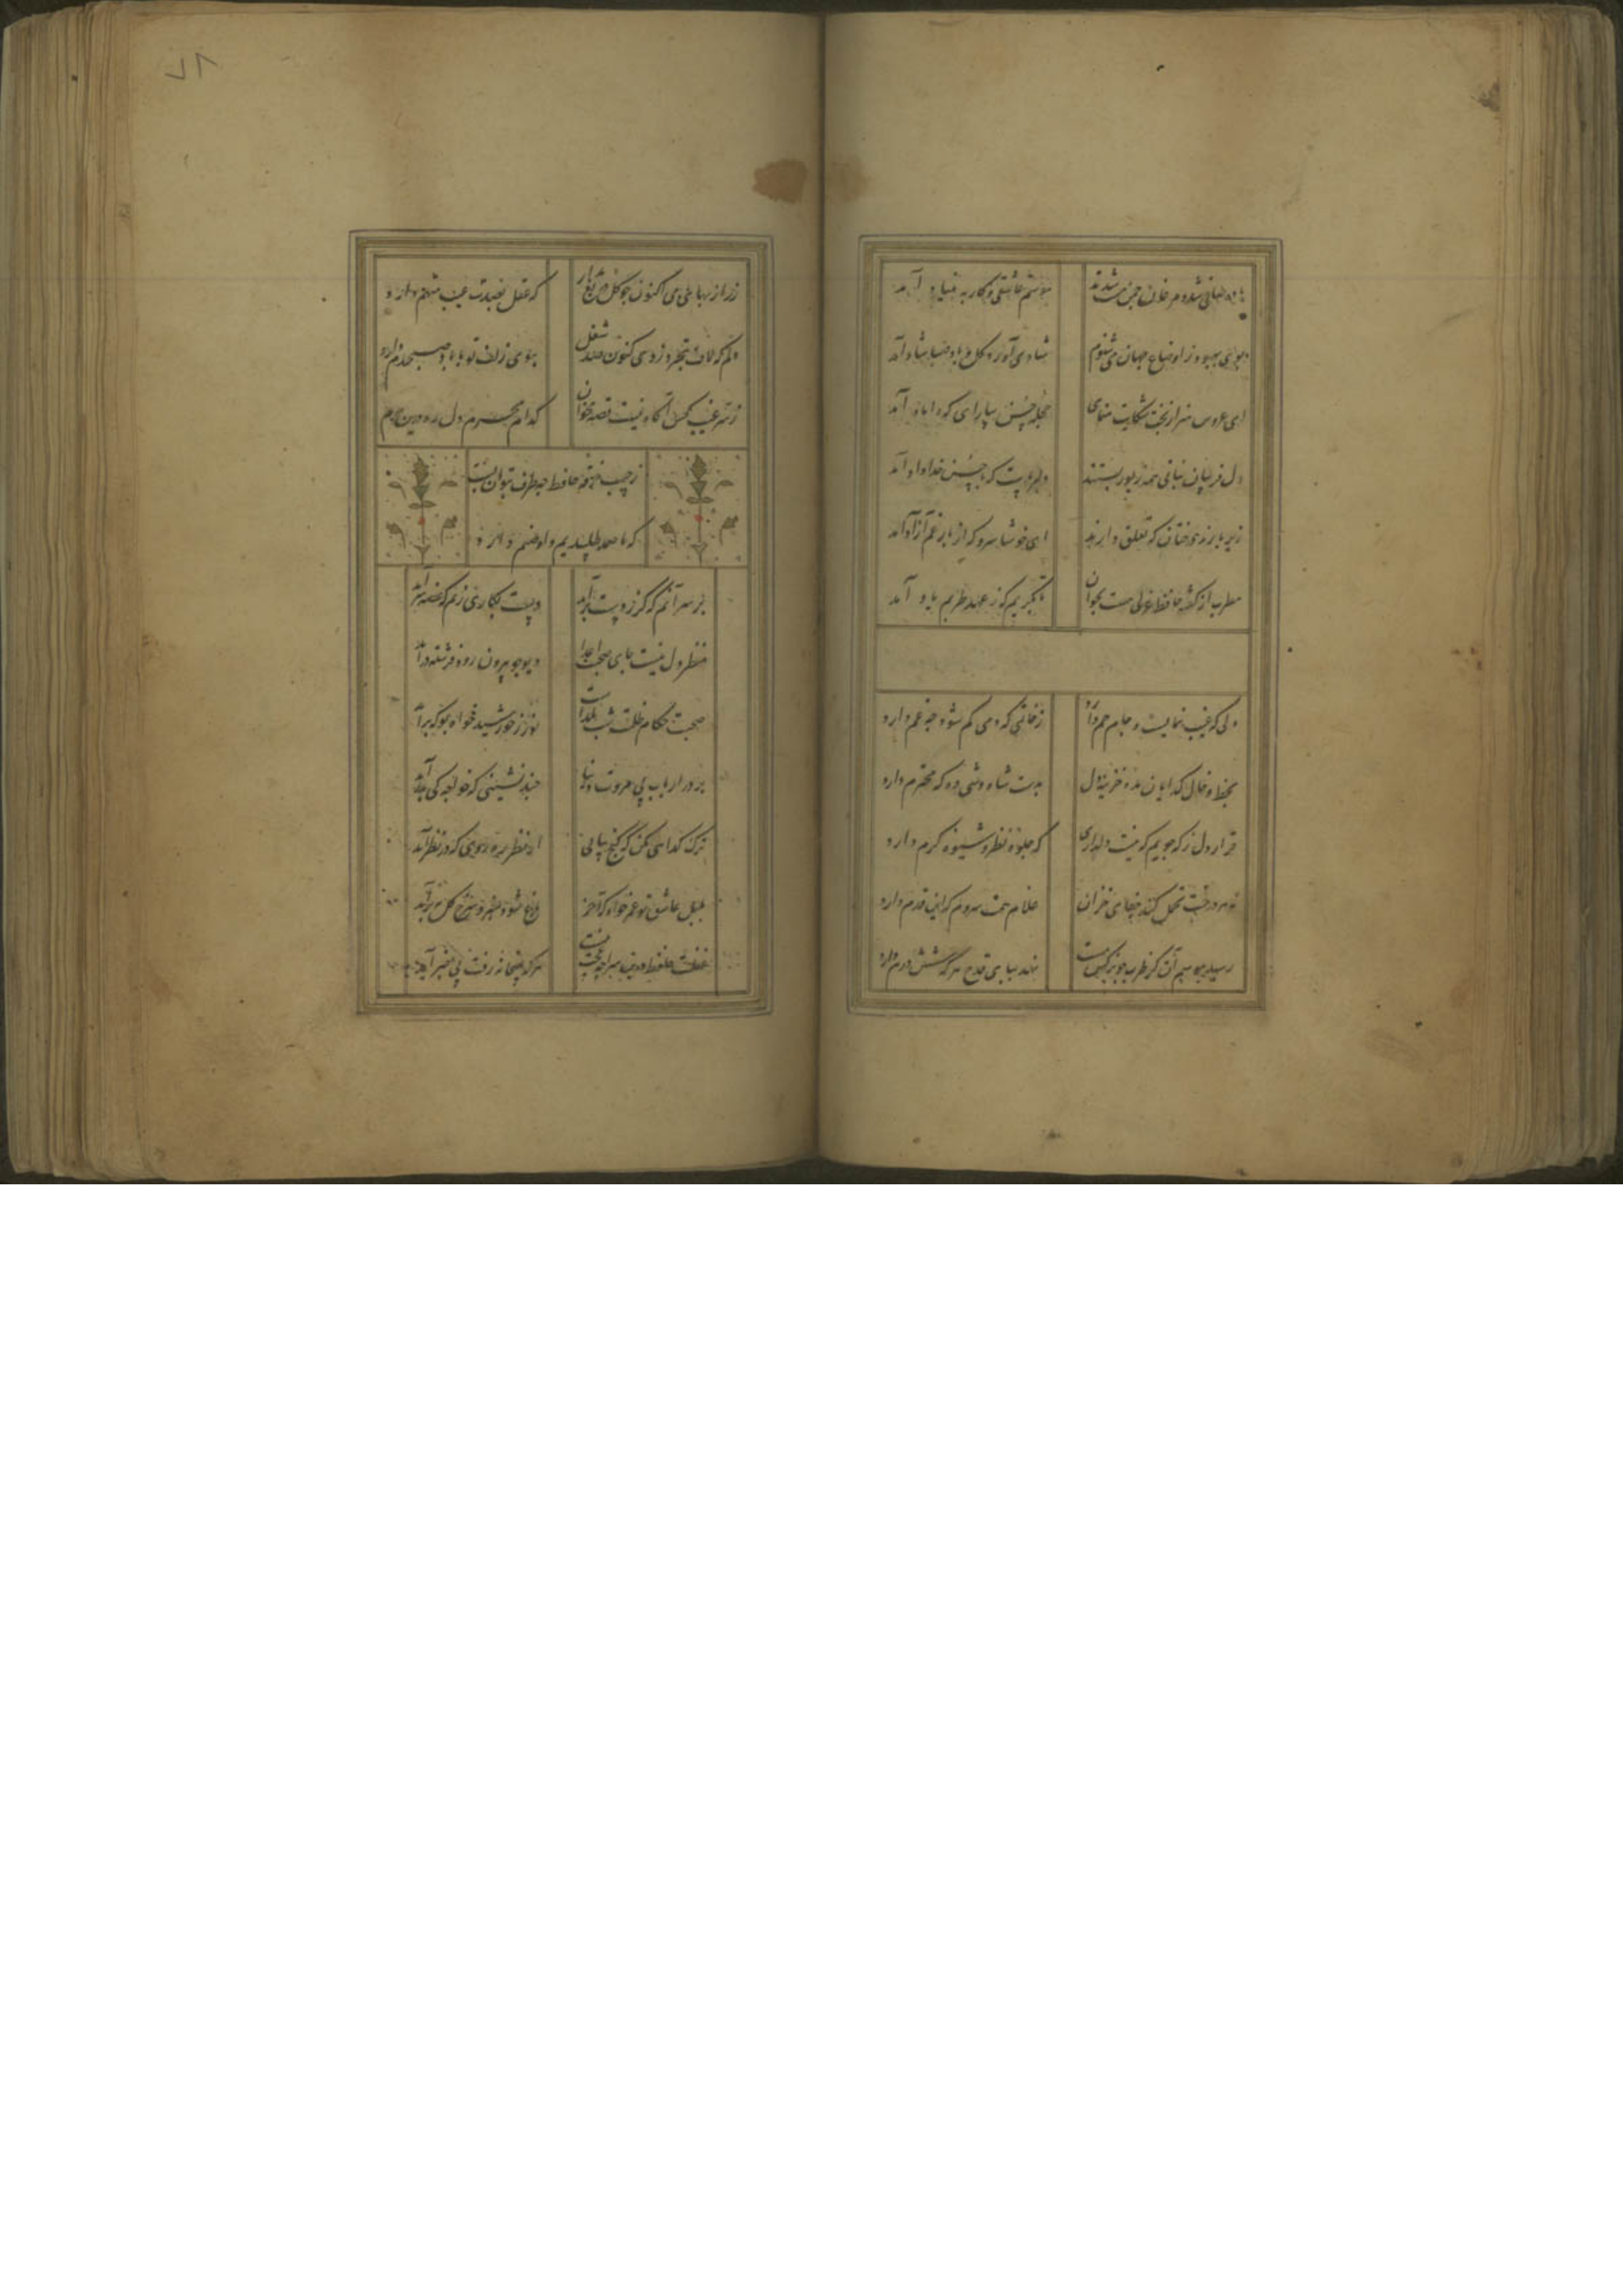 باده صافی شد و مرغان چمن مست شدند
موسم عاشقی و کار به بنیاد آمد
بوی بهبود ز اوضاع جهان می شنوم
شادی آورد گل و باد صبا شاد آمد
ای عروس هنر از بخت شکایت منمای
حجله حسن بیارای که داماد آمد
دل فریبان نباتی همه زیور بستند
دلبر ماست که با حسن خداداد آمد
زیر بارند درختان که تعلق دارند
ای خوشا سرو که از بار غم آزاد آمد
مطرب از گفته حافظ غزلی مست بخوان
تا بگریم که ز عهد طربم یاد آمد
دلی که غیب نمایست و جام جم دارد
ز خاتمی که دمی گم شود چه غم دارد
بخط و خال گدایان مده خزینه دل
بدست شاه وشی ده که محترم دارد
قرار دل ز که جویم که نیست دلداری
که جلوه نظر و شیوه کرم دارد
نه هر درخت تحمل کند جفای خزان
غلام همت سروم که این قدم دارد
رسید موسم آن کز طرب چو نرگس مست
نهد بپای قدح هر که شش درم دارد
زر از بهای می اکنون چو گل دریغ مدار
که عقل کل بصدت عیب متهم دارد
دلم که لاف تجرد زدی کنون صد شغل
ببوی زلف تو با باد صبحدم دارد
ز سر غیب کس آگاه نیست قصه مخوان
کدام محرم دل ره درین حرم
ز جیب خرقه حافظ چه طرف بتوان بست
که ما صمد طلبیدیم و او صنم دارد
بر سر آنم که گر ز دست برآید
دست بکاری زنم که غصه سر آید
منظر دل نیست جای صحبت اضداد
دیو چو بیرون رود فرشته درآید
صحبت حکام ظلمت شب یلداست
نور ز خورشید خواه بو که برآید
بر در ارباب بی مروت دنیا
چند نشینی که خواجه کی بدر آید
ترک گدایی مکن که گنج بیابی
از نظر ره روی که در نظر آید
بلبل عاشق تو عمر خواه که آخر
باغ شود سبز و سرخ گل ببر آید
غفلت حافظ درین سراچه عجب نیست
هر که بمیخانه رفت بی خبر آید